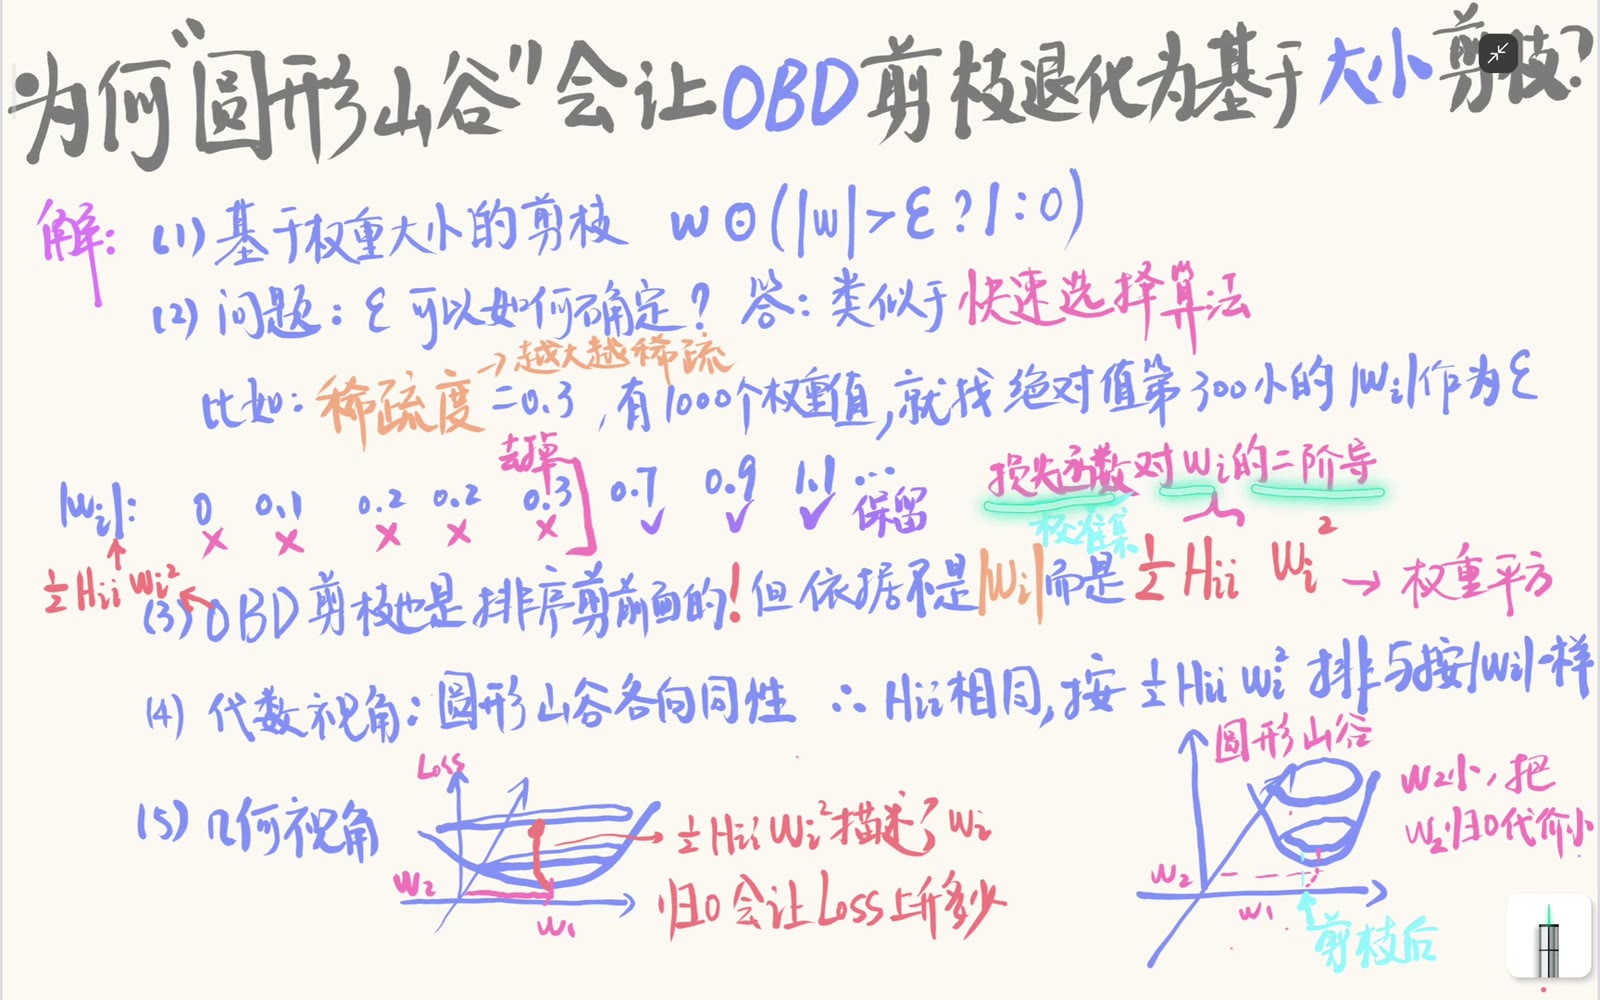 为何“圆形山谷”会让OBD剪枝退化为基于大小剪枝?
解: (1) 基于权重大小的剪枝 w⊙(|w|>ε?1:0)
(2) 问题: ε可以如何确定? 答: 类似于快速选择算法
→越大越稀疏
比如: 稀疏度=0.3, 有1000个权重值, 就找绝对值第300小的|Wi|作为ε
去掉
损失函数对Wi的二阶导
|Wi|: 0 0.1 0.2 0.2 0.3 0.7 0.9 1.1 …
× × × × × ✓ ✓ ✓ 保留
校准集
½Hii Wi²
(3) OBD剪枝也是排序剪前面的! 但依据不是|Wi|而是½Hii Wi² → 权重平方
(4) 代数视角: 圆形山谷各向同性 ∴ Hii相同, 按½Hii Wi²排与按|Wi|一样
(5) 几何视角
Loss
W2
W1
½Hii Wi²描述了Wi
归0会让Loss上升多少
圆形山谷
W2
W1
剪枝后
W2小, 把
W2归0代价小